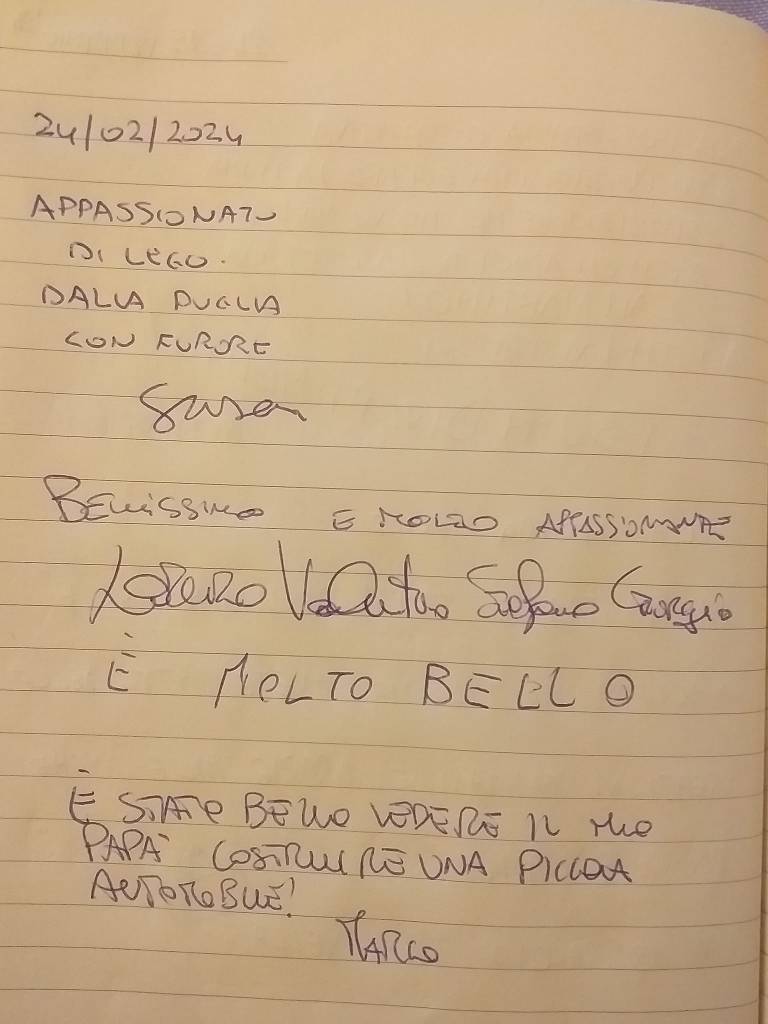 24/02/2024
APPASSIONATO
DI LEGO.
DALLA PUGLIA
CON FURORE
BELLISSIMO E MOLTO APPASSIONANTE
Lorenzo Valentino Stefano Giorgio
È MOLTO BELLO
È STATO BELLO VEDERE IL MIO
PAPÀ COSTRUIRE UNA PICCOLA
AUTOMOBILE!
MARCO